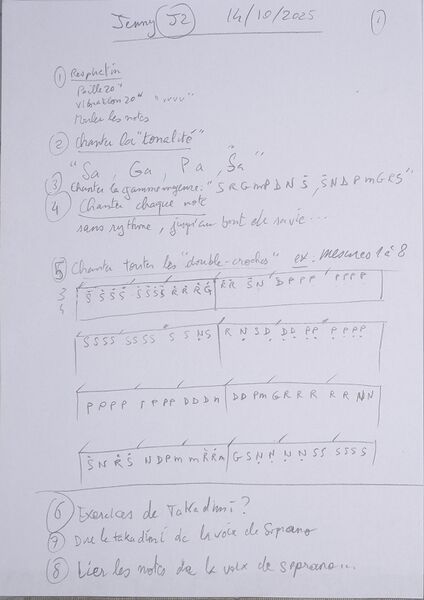 Jenny J2 14/10/2025 1
① Respiration
Paille 20"
vibration 20" "vvvv"
les notes
② Chanter la "tonalité"
"Sa, Ga, Pa, Ṡa"
③ Chanter la gamme majeure: "S R G m P D N Ṡ, Ṡ N D P m G R S"
④ Chanter chaque note
sans rythme, jusqu'au bout de sa vie...
⑤ Chanter toutes les "double-croches" ex. mesures 1 à 8
3
4
Ṡ Ṡ Ṡ Ṡ Ṡ Ṡ Ṡ Ṡ Ṙ Ṙ Ṙ Ġ Ṙ Ṙ Ṡ N D P P P P P P P
S S S S S S S S S S Ṇ S R Ṇ S Ḍ Ḍ Ḍ P̣ P̣ P̣ P̣ P̣ P̣
P P P P P P P P D D D n D D P m G R R R R R N N
Ṡ N Ṙ Ṡ N D P m m Ṙ Ṙ m G S Ṇ Ṇ Ṇ Ṇ S S S S S S
⑥ Exercices de Takadimi?
⑦ Dire le takadimi de la voix de Soprano
⑧ Lier les notes de la voix de soprano...